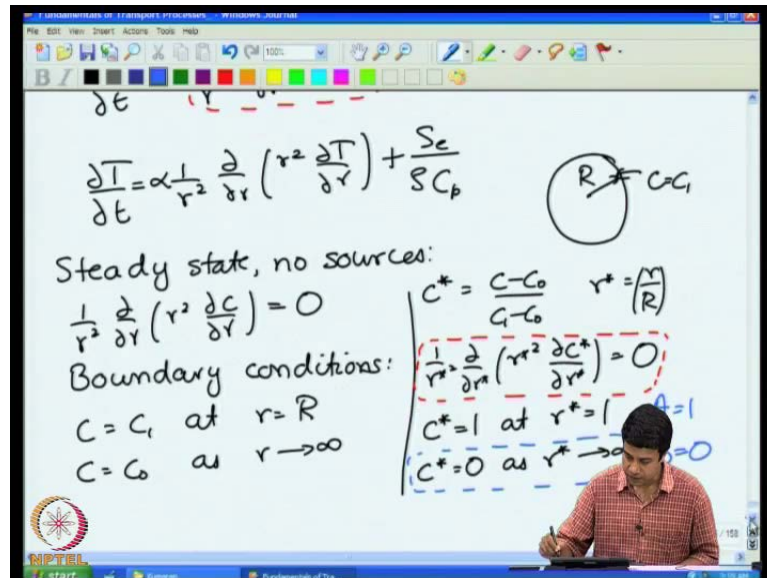 Fundamentals of Transport Processes_ - Windows Journal
File Edit View Insert Actions Tools Help
100%
B I
∂t
∂T/∂t = α 1/r² ∂/∂r (r² ∂T/∂r) + Se/ρCp
R C=C₁
Steady state, no sources:
1/r² ∂/∂r (r² ∂C/∂r) = 0
Boundary conditions:
C = C₁ at r = R
C = C₀ as r → ∞
C* = C-C₀/C₁-C₀ r* = (r/R)
1/r*² ∂/∂r* (r*² ∂C*/∂r*) = 0
C*=1 at r*=1 A=1
C*=0 as r* → ∞ =0
/ 158
NPTEL
start
Fundamentals of Tra